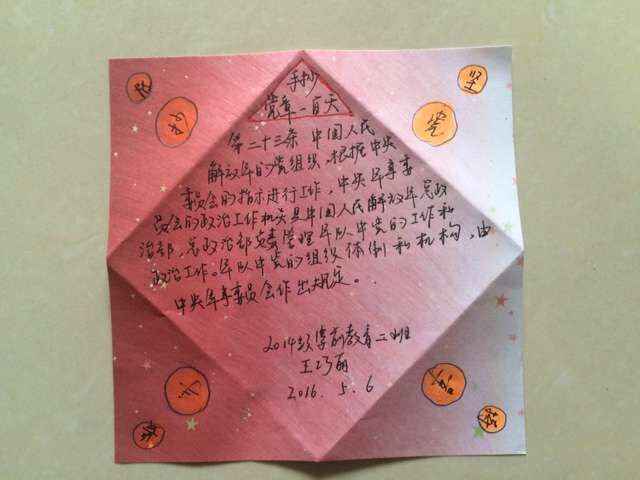 手抄
党章一百天
坚
党
第二十三条 中国人民
解放军的党组织,根据中央
委员会的指示进行工作,中央军事委
员会的政治工作机关是中国人民解放军总政
治部,总政治部负责管理军队中党的工作和
政治工作。军队中党的组织体制和机构,由
中央军事委员会作出规定。
2014级学前教育二班
王巧丽
2016.5.6